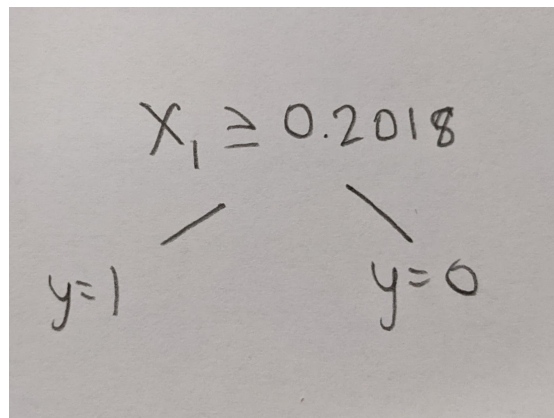 X₁ ≥ 0.2018
y=1 y=0